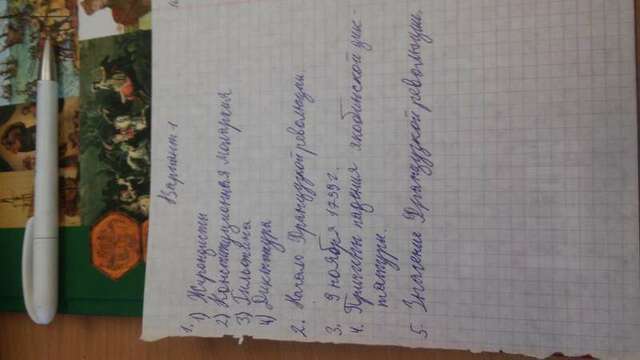 Вариант 1
1.
1) Жирондисты
2) Конституционная монархия
3) Гильотина
4) Диктатура
2. Начало Французской революции.
3. 9 ноября 1799г.
4. Причины падения якобинской дик-
татуры.
5. Значение Французской революции.